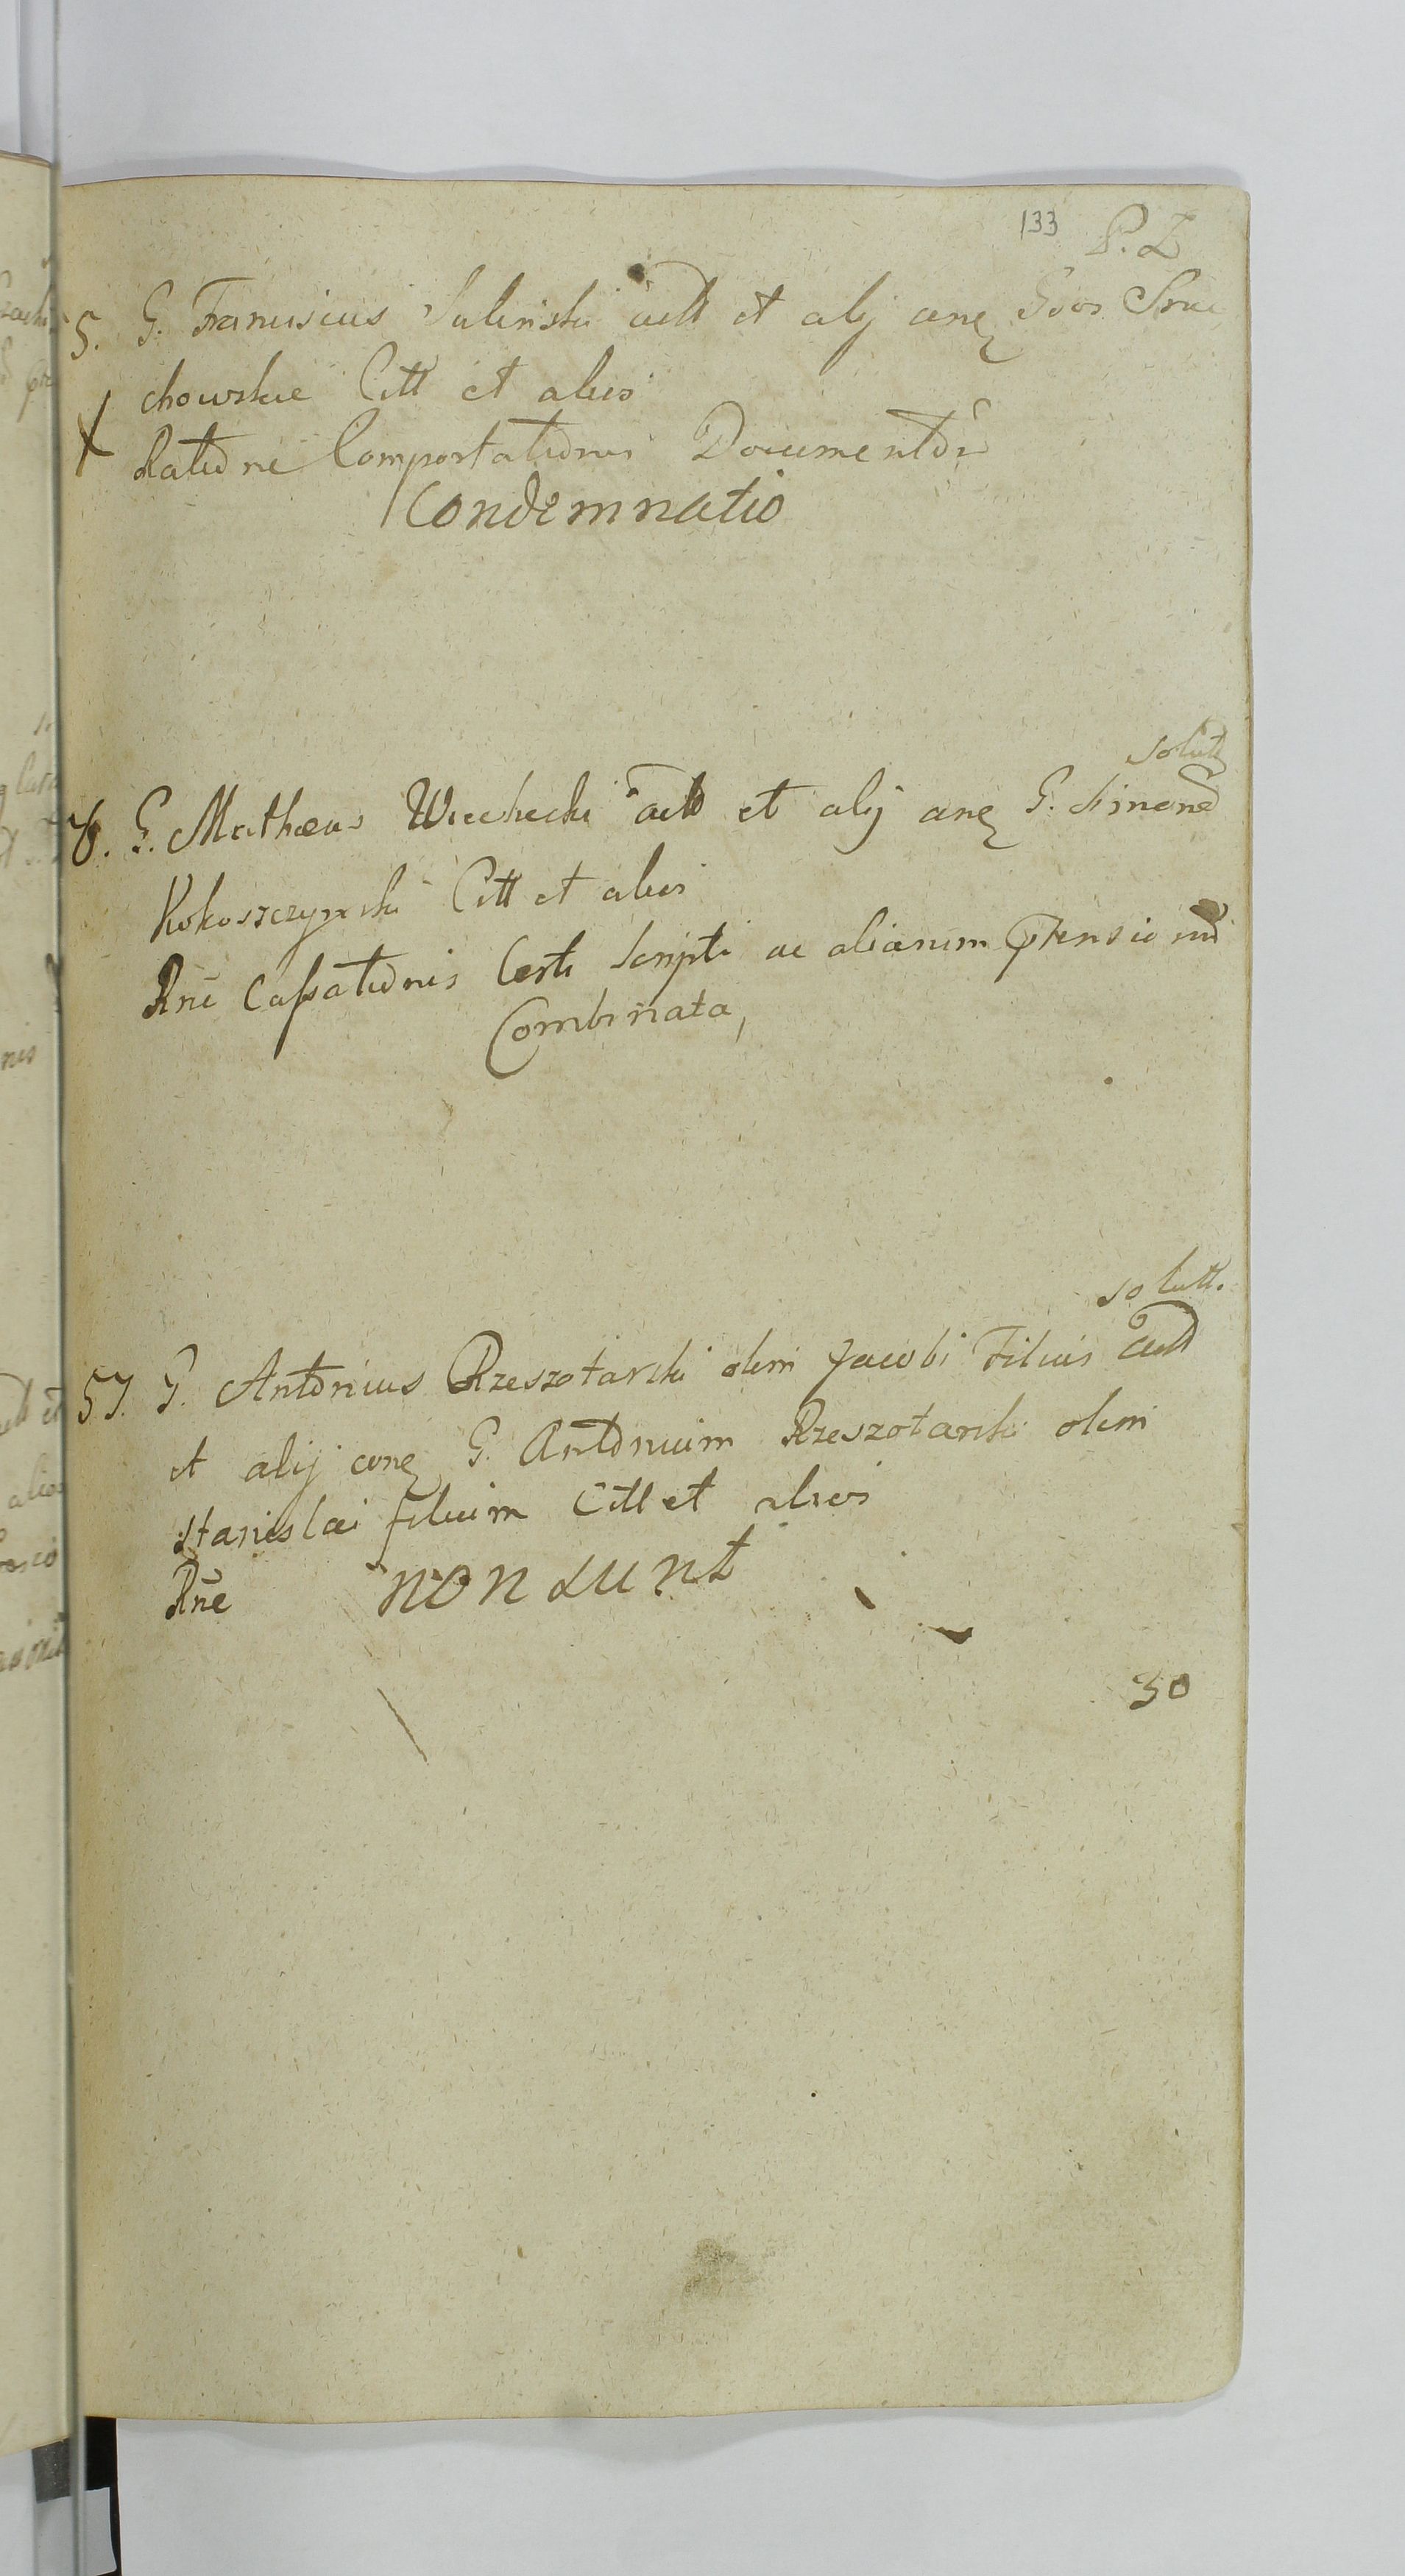 133 P. Z
5. G. Franciscus Suliński actt et alij cnę Gsos Srac
chowskie Citt et alios
Ratione Comportationis Documentor
Condemnatio
solutt
6. G. Mathæus Wiechecki act et alij cnę G. Simone
Kokoszczyński Citt et alios
Rne Cassationis Certi Scripti ac aliarum ptensionu
Combinata,
solutt.
57. G. Antonius Rzeszotarski olim Jacobi Filius actt
et alij cnę G. Antonium Rzeszotarski olim
Stanislai filium Citt et alios
Rne non sunt
30